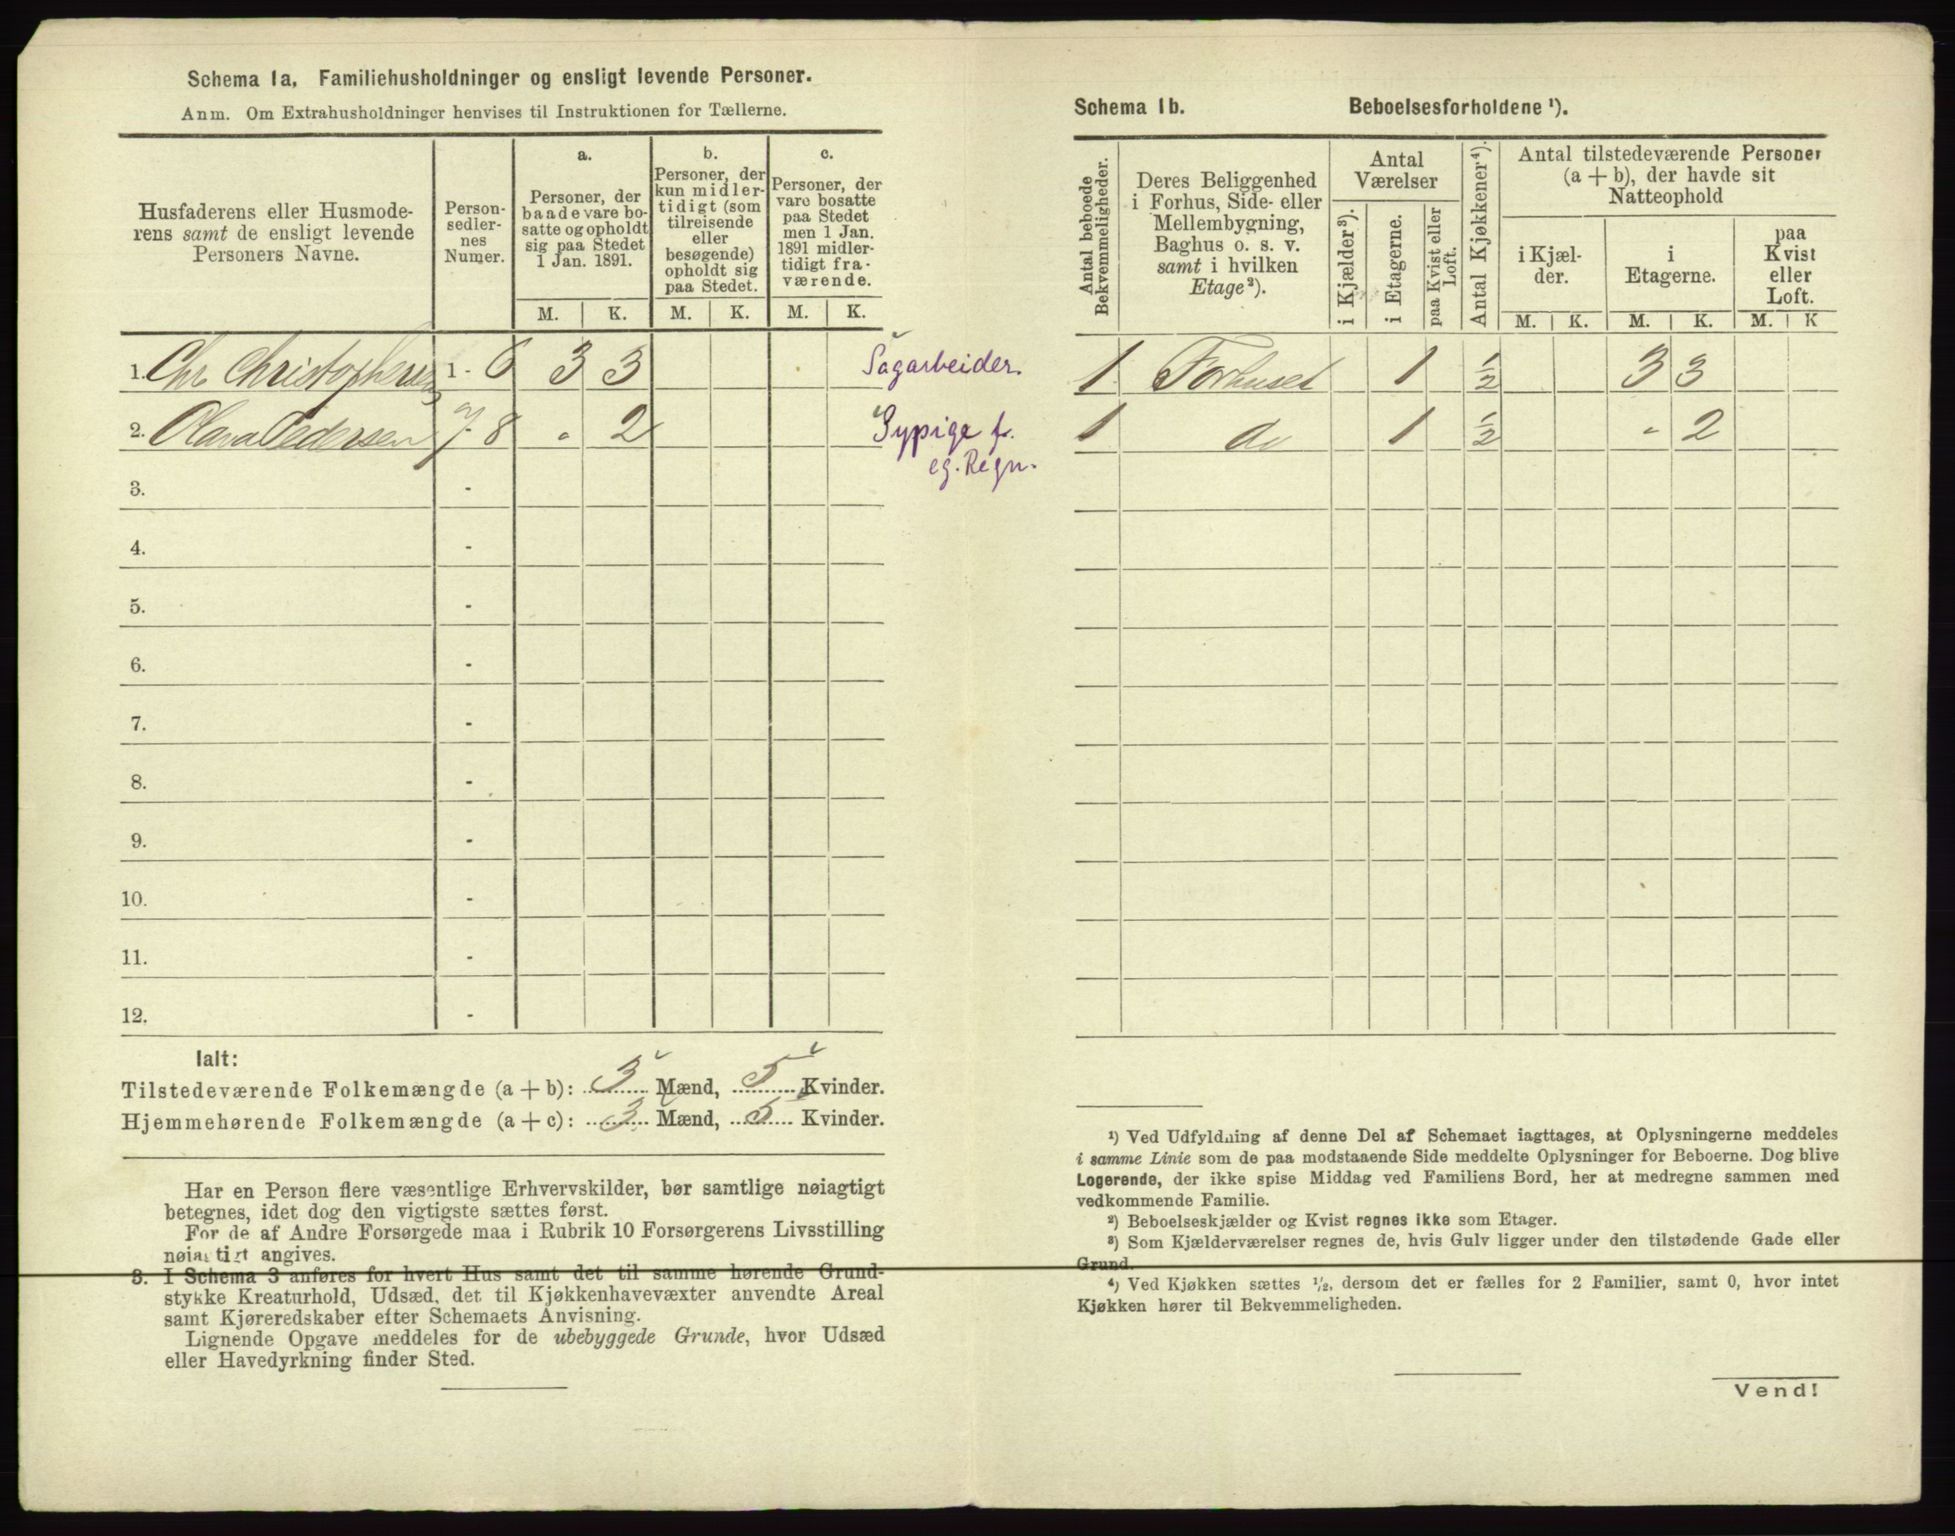 Schema 1a. Familiehusholdninger og ensligt levende Personer.
Anm. Om Extrahusholdninger henvises til Instruktionen for Tællerne.
Husfaderens eller Husmode-
rens samt de ensligt levende
Personers Navne.
Person-
sedler-
nes
Numer.
a.
Personer, der
baade vare bo-
satte og opholdt
sig paa Stedet
1 Jan. 1891.
b.
Personer, der
kun midler-
tidigt (som
tilreisende
eller
besøgende)
opholdt sig
paa Stedet.
c.
Personer, der
vare bosatte
paa Stedet
men 1 Jan.
1891 midler-
tidigt fra-
værende.
M. K. M. K. M. K.
1. Chr Christophersen 1 - 6 3 3 Sagarbeider.
2. Olava Pedersen 7 - 8 " 2 Sypige f.
eg. Regn.
3. -
4. -
5. -
6. -
7. -
8. -
9. -
10. -
11. -
12. -
Ialt:
Tilstedeværende Folkemængde (a + b): 3 Mænd, 5 Kvinder.
Hjemmehørende Folkemængde (a + c): 3 Mænd, 5 Kvinder.
Har en Person flere væsentlige Erhvervskilder, bør samtlige nøiagtigt
betegnes, idet dog den vigtigste sættes først.
For de af Andre Forsørgede maa i Rubrik 10 Forsørgerens Livsstilling
nøiagtigt angives.
3. I Schema 3 anføres for hvert Hus samt det til samme hørende Grund-
stykke Kreaturhold, Udsæd, det til Kjøkkenhavevæxter anvendte Areal
samt Kjøreredskaber efter Schemaets Anvisning.
Lignende Opgave meddeles for de ubebyggede Grunde, hvor Udsæd
eller Havedyrkning finder Sted.
Schema 1b. Beboelsesforholdene ¹).
Antal beboede
Bekvemmeligheder.
Deres Beliggenhed
i Forhus, Side- eller
Mellembygning,
Baghus o. s. v.
samt i hvilken
Etage²).
Antal
Værelser
i Kjælder³).
i Etagerne.
paa Kvist eller
Loft.
Antal Kjøkkener⁴).
Antal tilstedeværende Personer
(a + b), der havde sit
Natteophold
i Kjæl-
der.
i
Etagerne.
paa
Kvist
eller
Loft.
M. K. M. K. M. K
1 Forhuset 1 ½ 3 3
1 do 1 ½ " 2
¹) Ved Udfyldning af denne Del af Schemaet iagttages, at Oplysningerne meddeles
i samme Linie som de paa modstaaende Side meddelte Oplysninger for Beboerne. Dog blive
Logerende, der ikke spise Middag ved Familiens Bord, her at medregne sammen med
vedkommende Familie.
²) Beboelseskjælder og Kvist regnes ikke som Etager.
³) Som Kjælderværelser regnes de, hvis Gulv ligger under den tilstødende Gade eller
Grund.
⁴) Ved Kjøkken sættes ½, dersom det er fælles for 2 Familier, samt 0, hvor intet
Kjøkken hører til Bekvemmeligheden.
Vend!